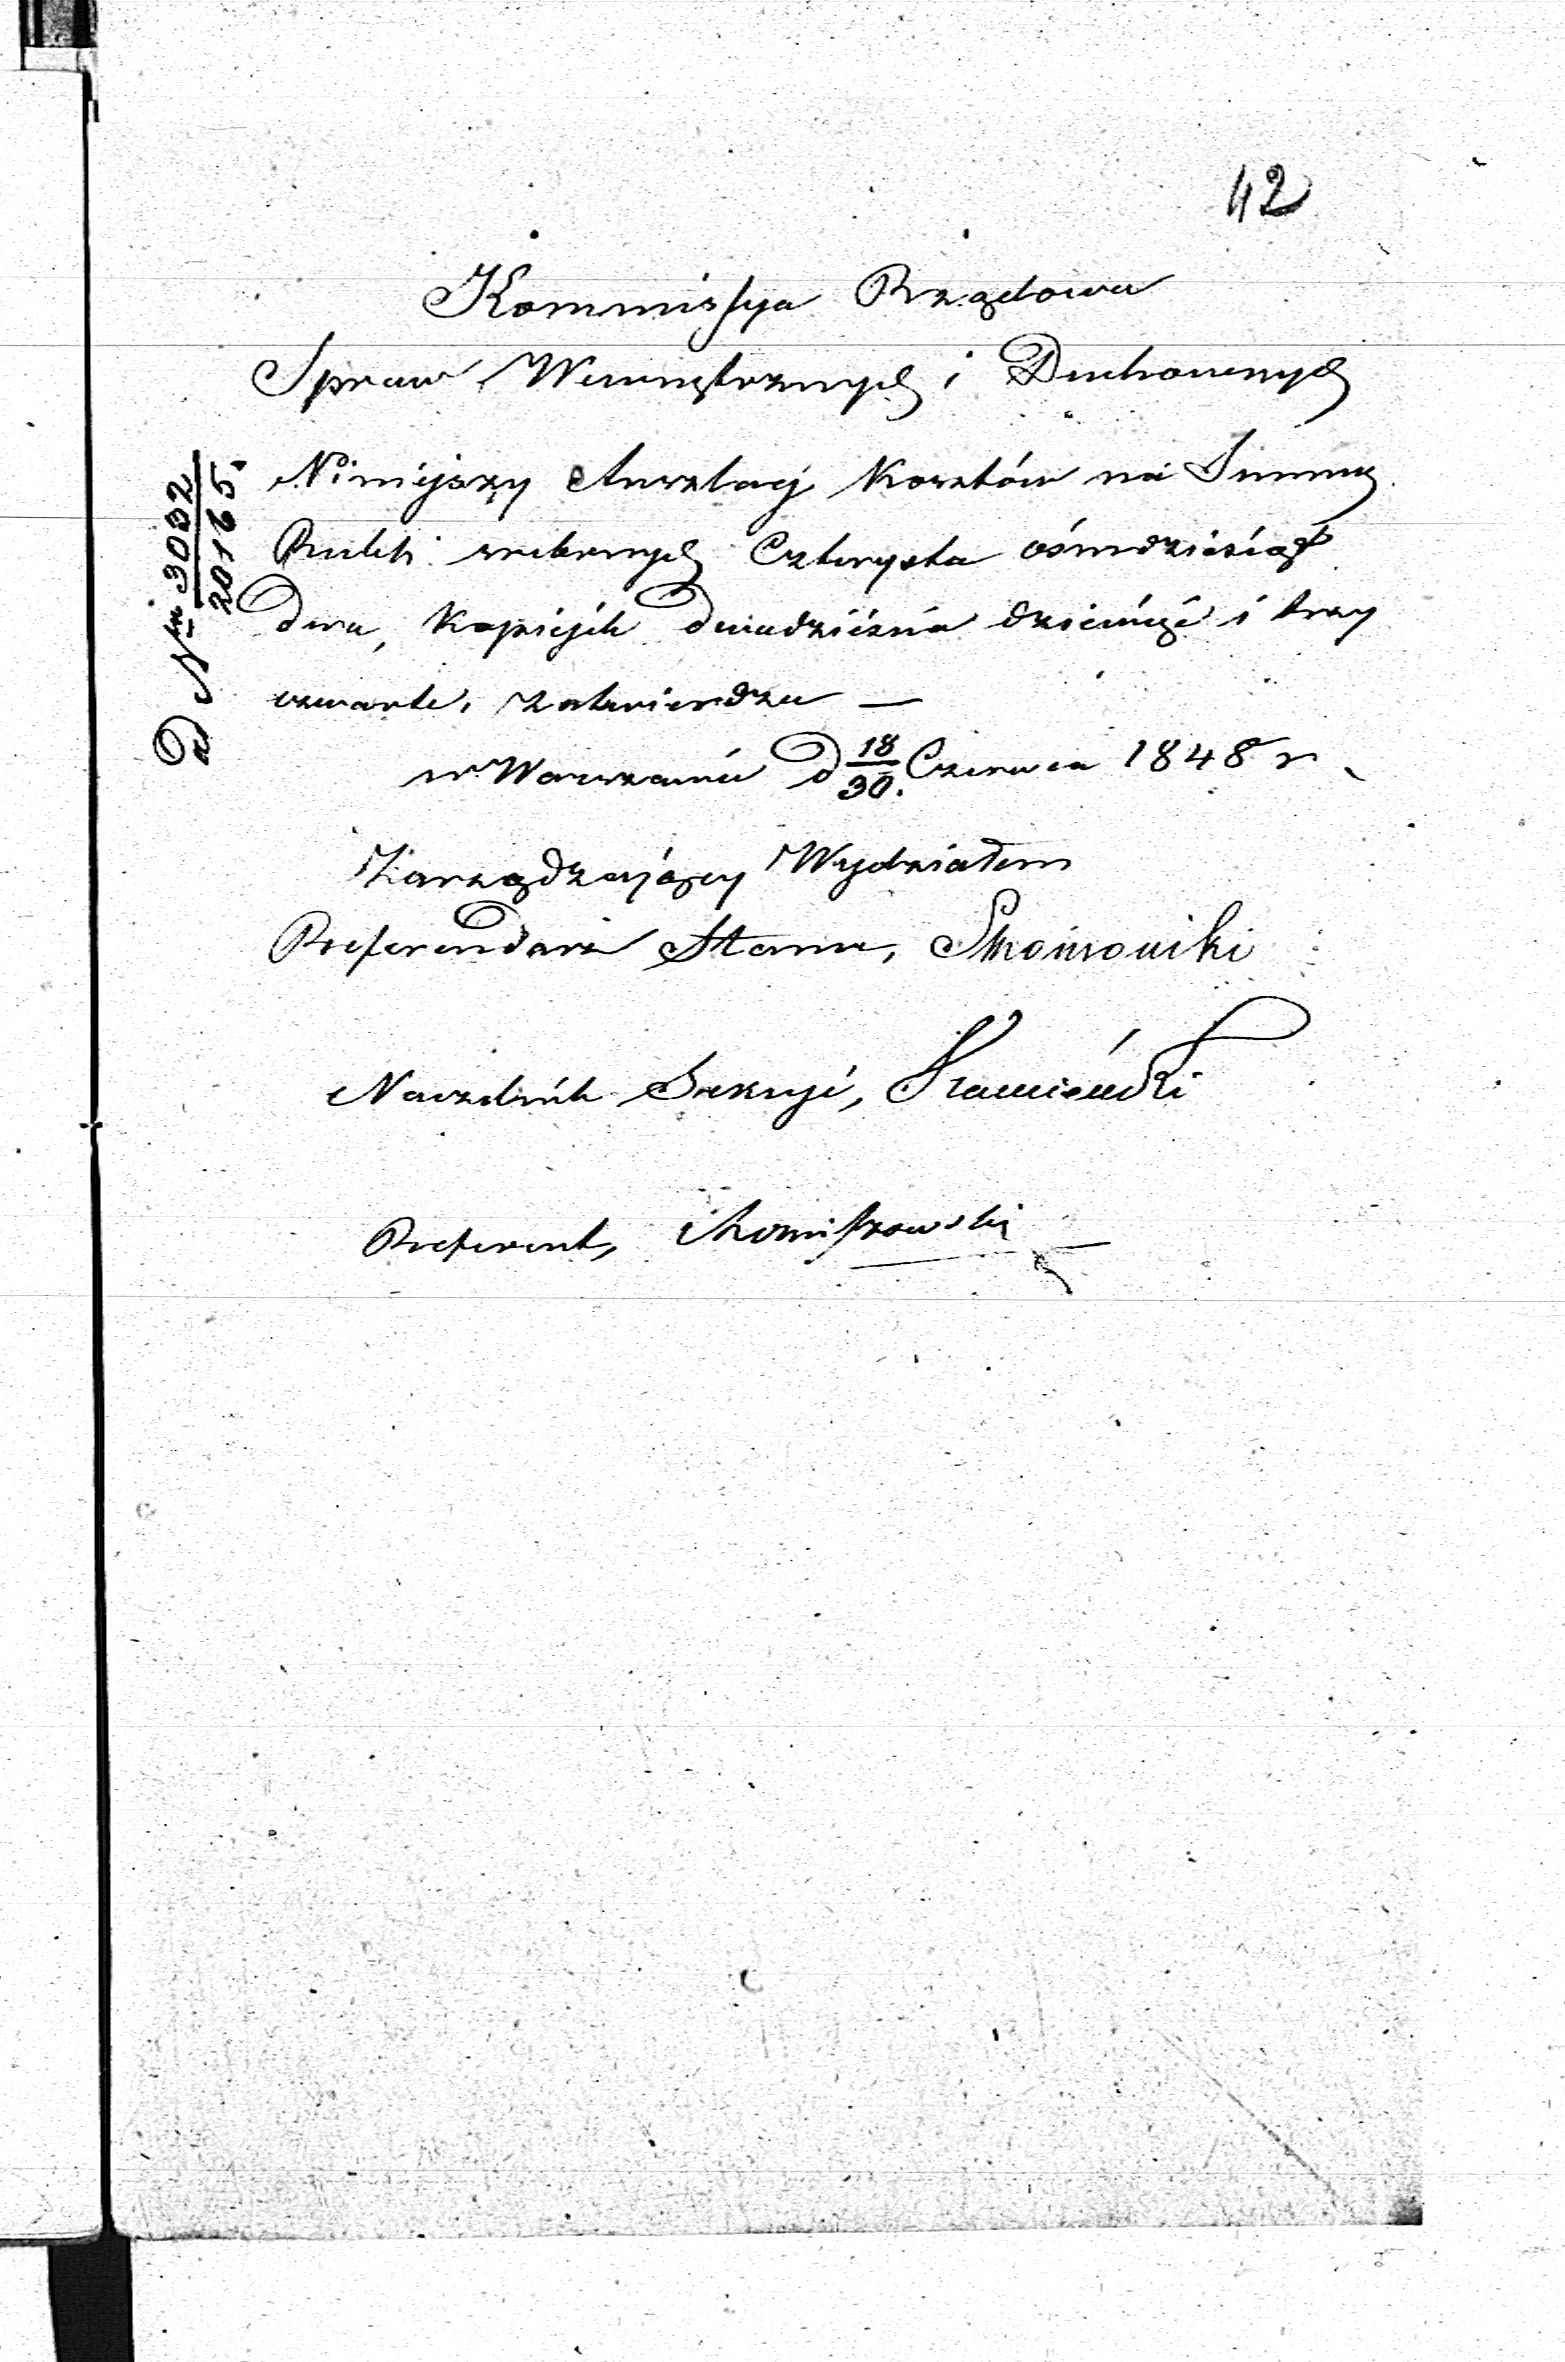 42
Kommissya Rządowa
Spraw Wewnętrznych i Duchownych
Niniejszy Anszlag Kosztów na Summę
Rubli srebrnych Czterysta ośmdziesiąt
dwa, Kopiejek dwadzieścia dziewięć i trzy
czwarte, zatwierdza —
w Warszawie d 18/30. Czerwca 1848 r
Zarządzający Wydziałem
Referendarz Stanu,
Naczelnik Sekcyi, Kamieński
Referent,
ad Nrm 3032/20165.